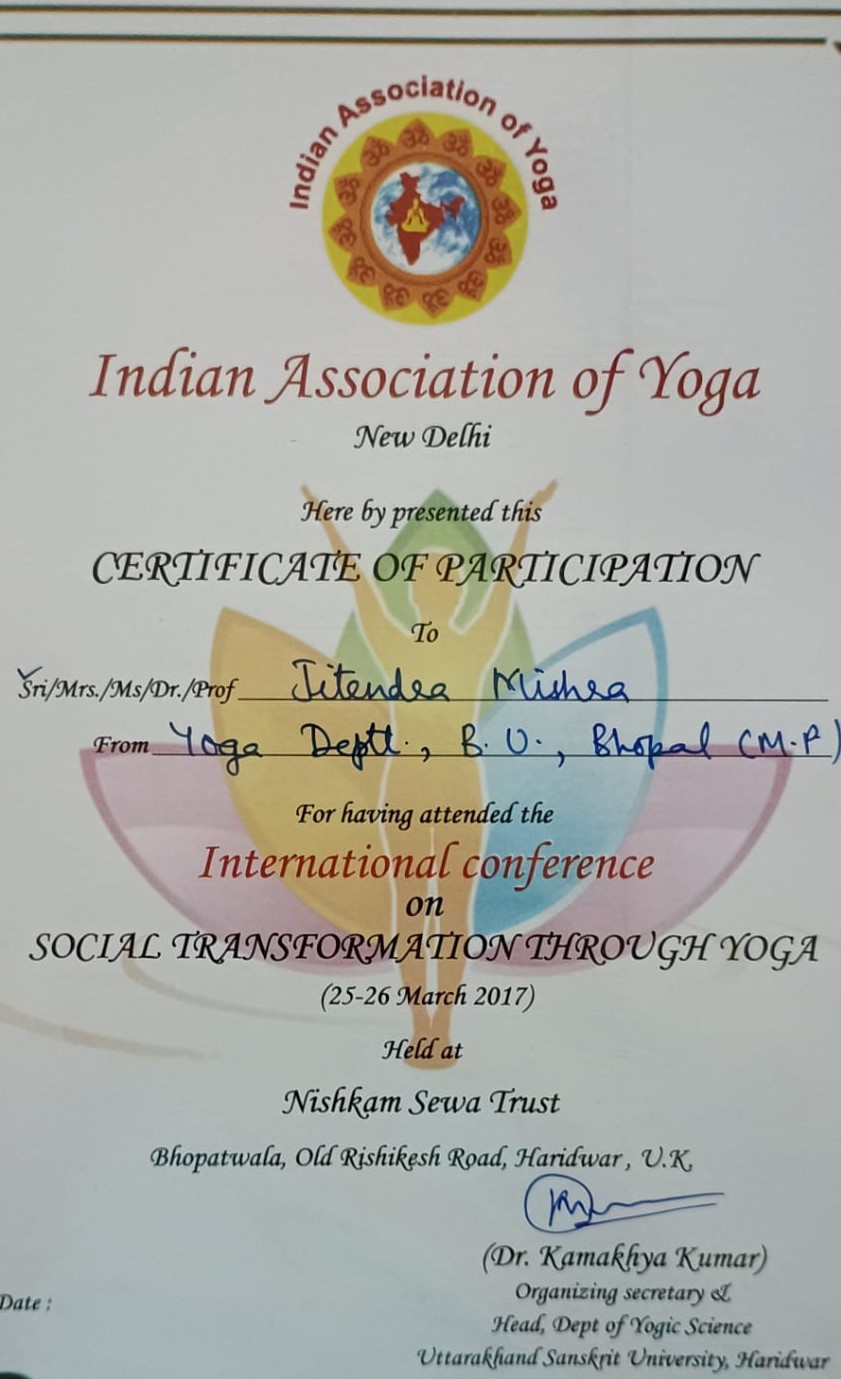 Indian Association of Yoga
Indian Association of Yoga
New Delhi
Here by presented this
CERTIFICATE OF PARTICIPATION
To
Sri/Mrs./Ms/Dr./Prof Jitendra Mishra
From Yoga Deptt., B.U., Bhopal (M.P)
For having attended the
International conference
on
SOCIAL TRANSFORMATION THROUGH YOGA
(25-26 March 2017)
Held at
Nishkam Sewa Trust
Bhopatwala, Old Rishikesh Road, Haridwar, U.K,
(Dr. Kamakhya Kumar)
Organizing secretary &
Date :
Head, Dept of Yogic Science
Uttarakhand Sanskrit University, Haridwar